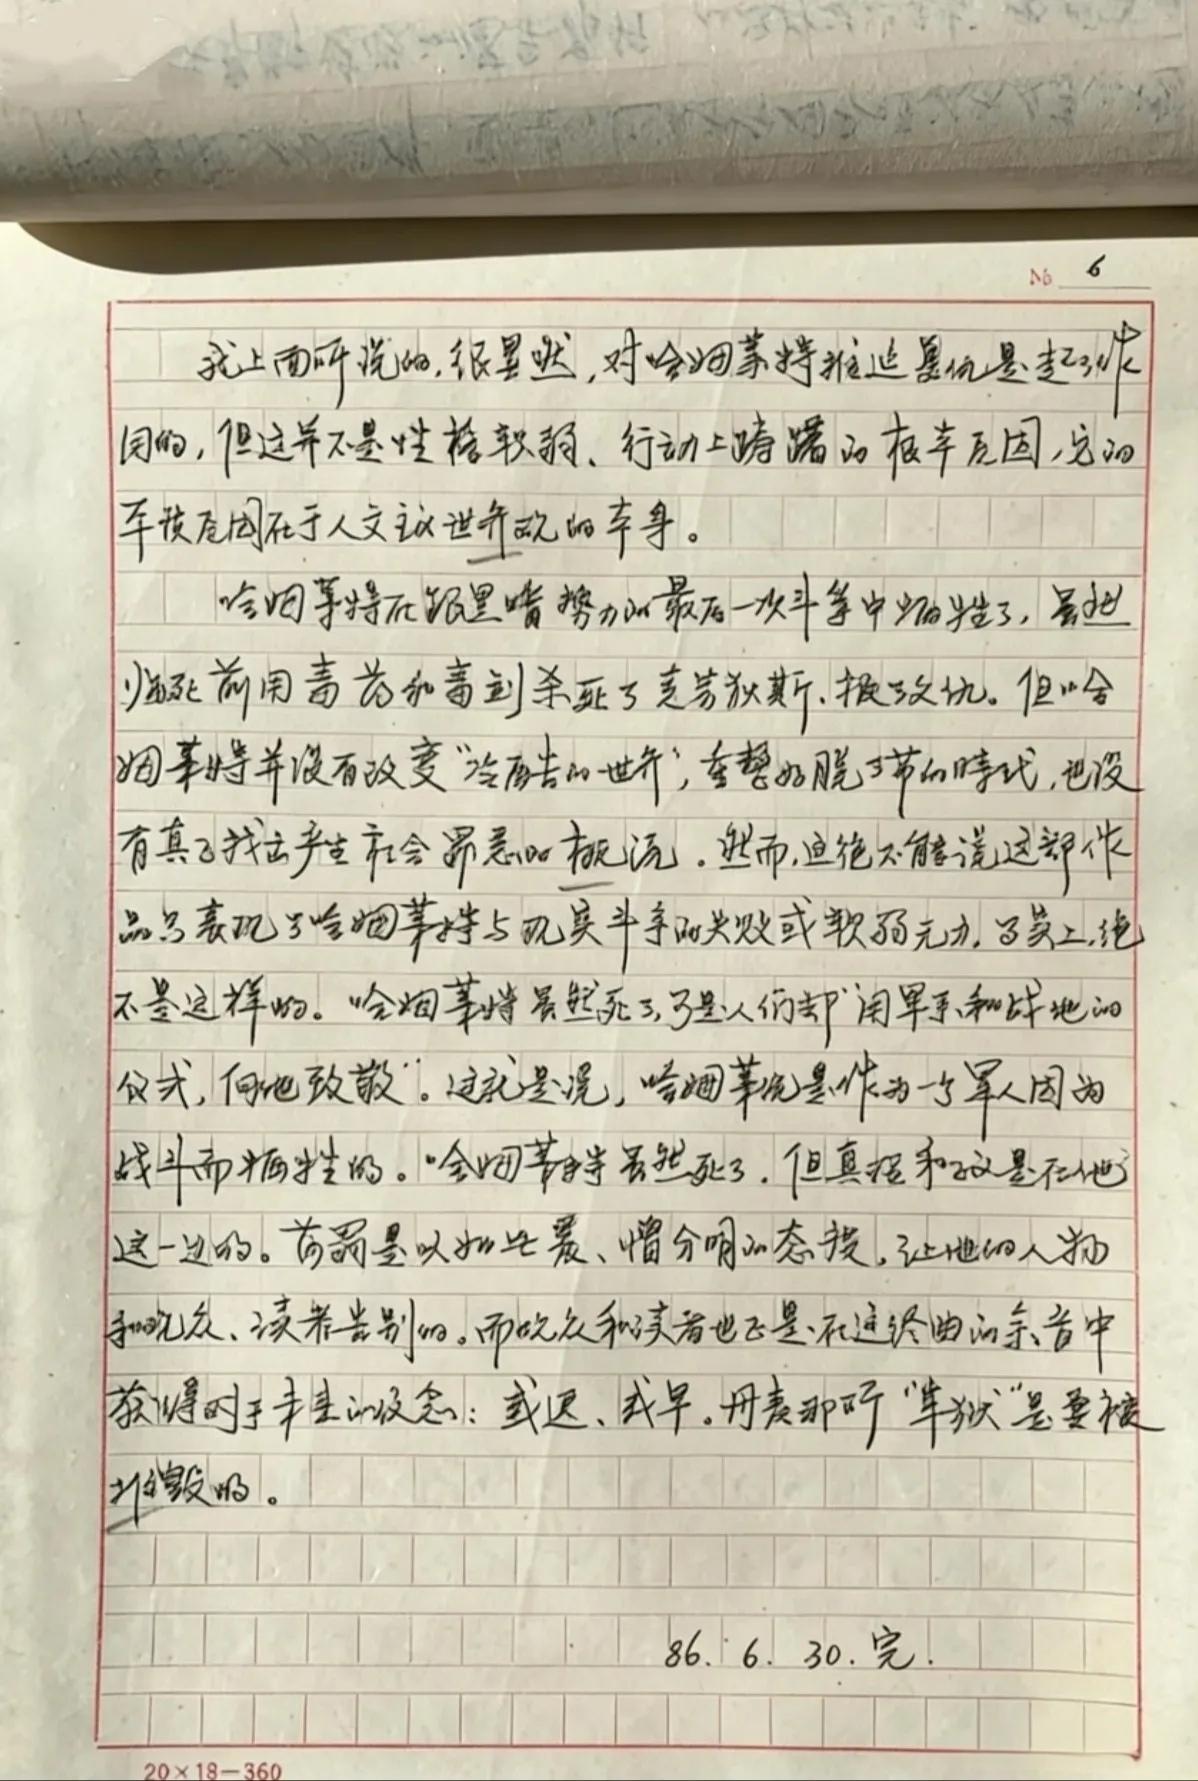 № 6
我上面所说的，很显然，对哈姆莱特推延复仇是起了作
用的，但这并不是性格软弱、行动上踌躇的根本原因，它的
本质原因在于人文主义世界观的本身。
哈姆莱特在跟黑暗势力的最后一次斗争中牺牲了，虽他
临死前用毒药和毒剑杀死了克劳狄斯、报了父仇。但哈
姆莱特并没有改变“冷酷的世界”，重整好脱了节的时代，也没
有真正找出产生社会罪恶的根源。然而，这绝不能说这部作
品只表现了哈姆莱特与现实斗争的失败或软弱无力，事实上，绝
不是这样的。哈姆莱特虽然死了，可是人们却“用军乐和战地的
仪式，向他致敬”。这就是说，哈姆莱特是作为一个军人因为
战斗而牺牲的。哈姆莱特虽然死了，但真理和正义是在他
这一边的。莎翁是以如此爱、憎分明的态度，让他的人物
和观众、读者告别的。而观众和读者也正是在这终曲的余音中
获得对于未来的信念：或迟、或早。丹麦那所“牢狱”是要被
摧毁的。
86. 6. 30. 完.
20×18－360